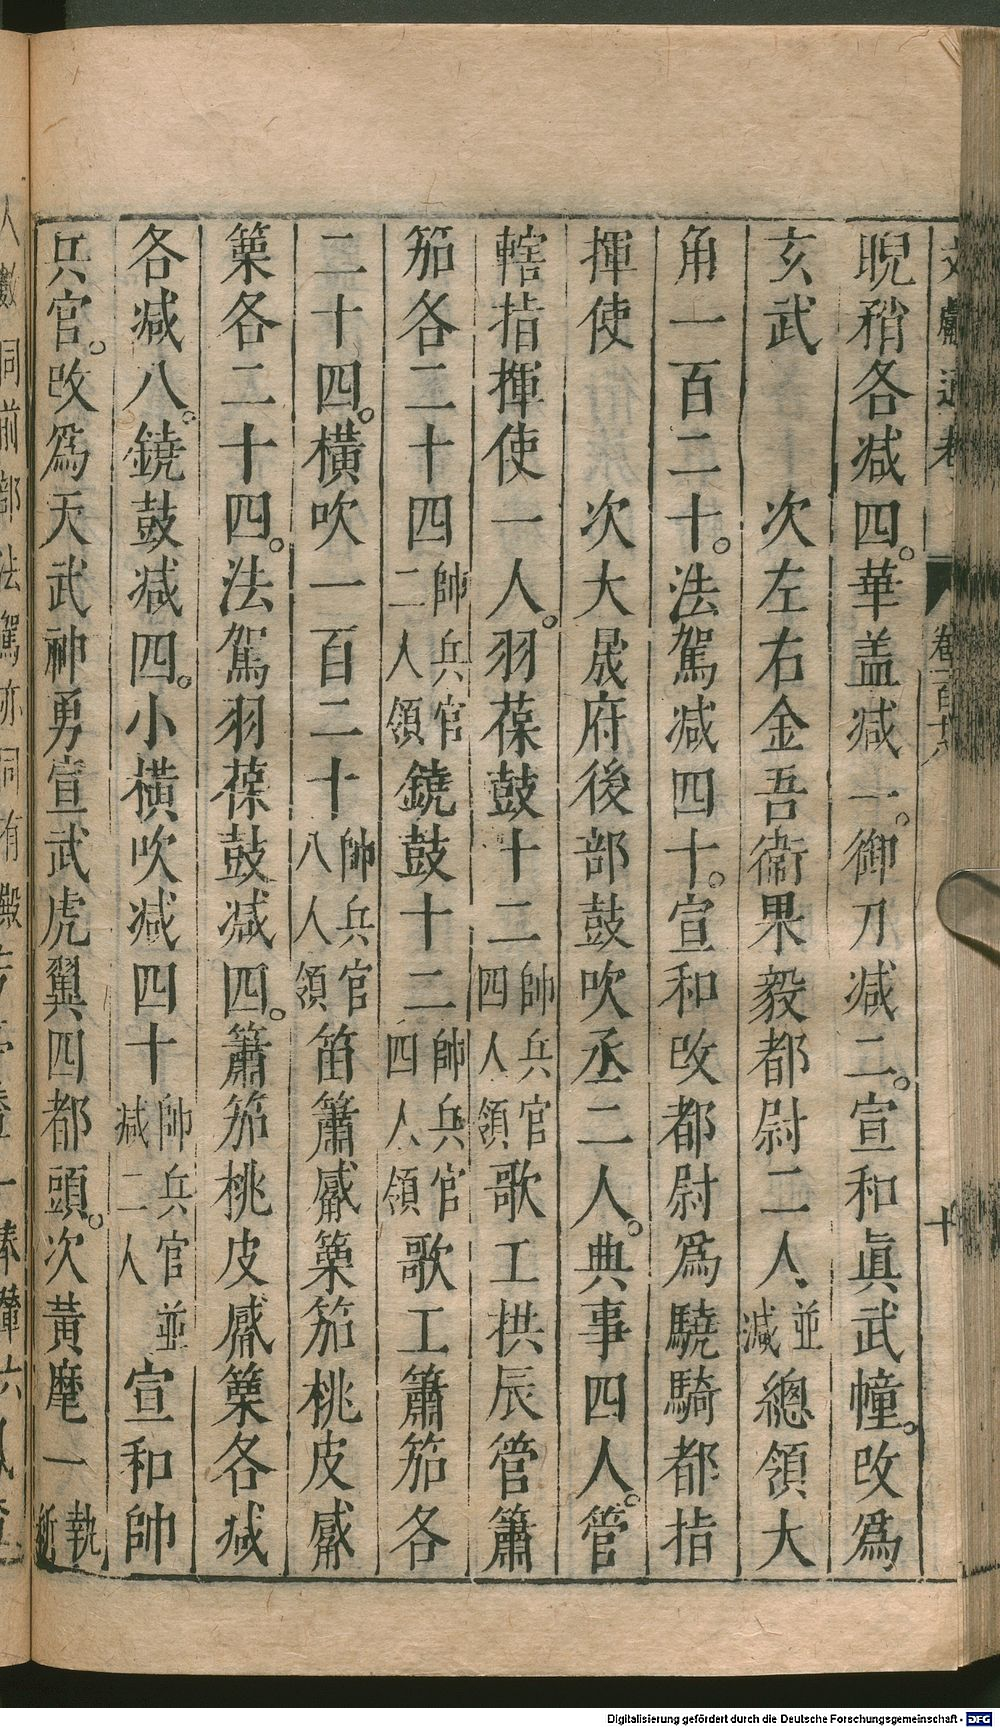 文獻通考 卷一百十八 十
睨矟各减四。華盖减一。御刀减二。宣和眞武幢。改爲
玄武 次左右金吾衞果毅都尉二人、並减總領大
角一百二十。法駕减四十。宣和改都尉爲驍騎都指
揮使 次大晟府後部鼓吹丞二人。典事四人。管
轄指揮使一人。羽葆鼓十二帥兵官四人領歌工拱辰管簫
笳各二十四帥兵官二人領鐃鼓十二帥兵官四人領歌工簫笳各
二十四。橫吹一百二十帥兵官八人領笛簫觱篥笳桃皮觱
篥各二十四。法駕羽葆鼓减四。簫笳桃皮觱篥各减
各减八。鐃鼓减四。小橫吹减四十帥兵官並减二人宣和帥
兵官。改爲天武神勇宣武虎翼四都頭。次黃麾一執
Digitalisierung gefördert durch die Deutsche Forschungsgemeinschaft - DFG